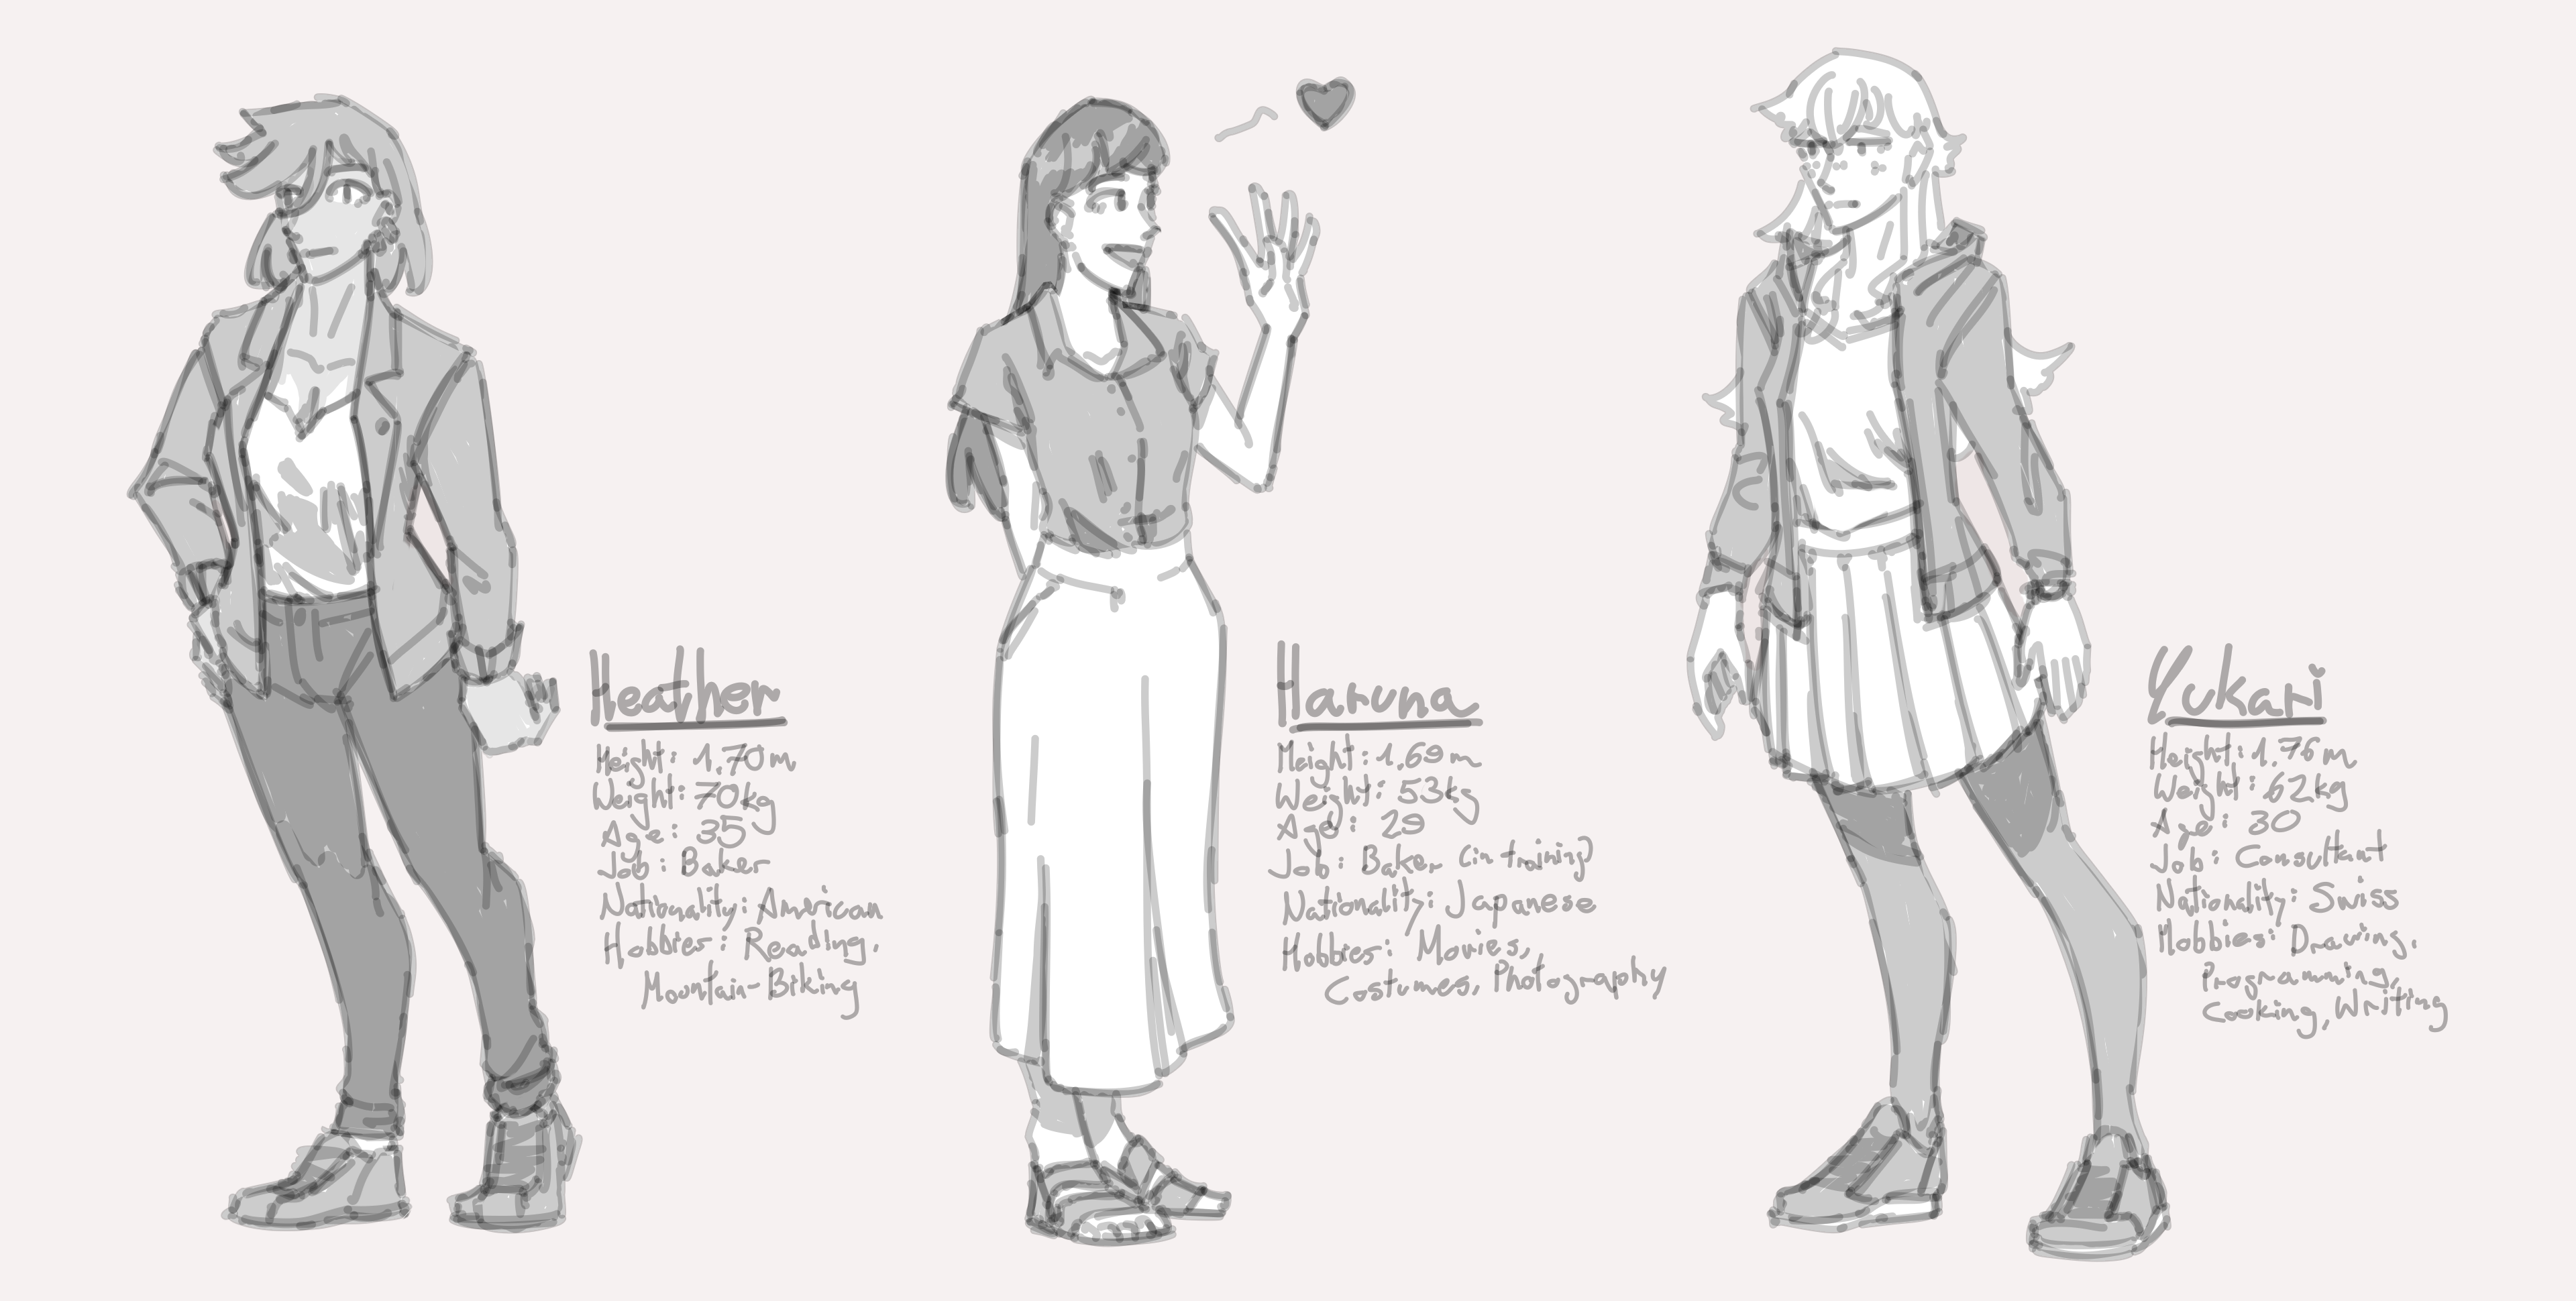 Heather
Height: 1.70m
Weight: 70kg
Age: 35
Job: Baker
Nationality: American
Hobbies: Reading,
Mountain-Biking
Haruna
Height: 1.69m
Weight: 53kg
Age: 29
Job: Baker (in training)
Nationality: Japanese
Hobbies: Movies,
Costumes, Photography
Yukari
Height: 1.76m
Weight: 62kg
Age: 30
Job: Consultant
Nationality: Swiss
Hobbies: Drawing,
Programming,
Cooking, Writing